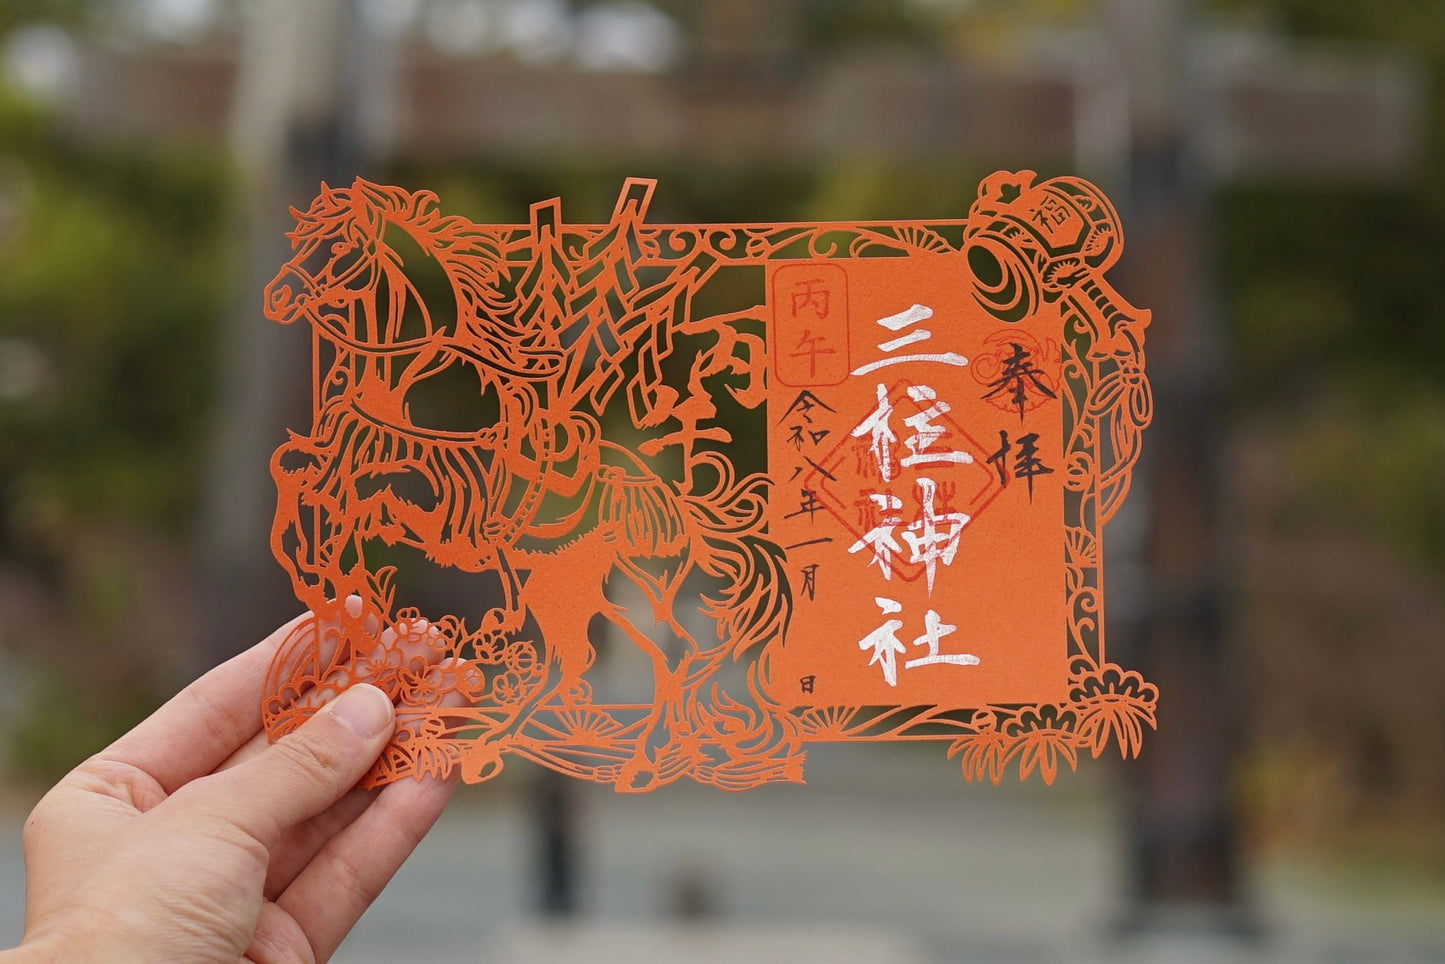 福
奉拝
三柱神社
丙午
令和八年一月 日
丙午